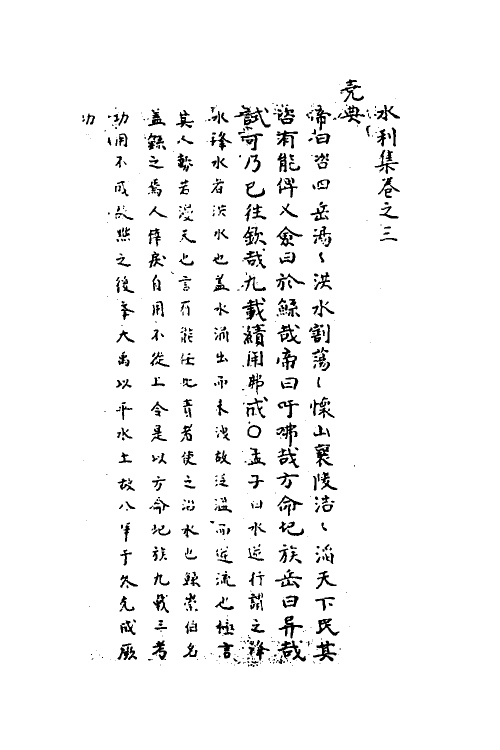 水利集卷之三
堯典
帝曰咨四岳湯〻洪水割蕩〻懷山襄陵浩〻滔天下民其
咨有能俾乂僉曰於鯀哉帝曰吁咈哉方命圮族岳曰异哉
試可乃已往欽哉九載績用弗成○孟子曰水逆行謂之洚
水洚水者洪水也盖水涌出而未洩故泛溢而逆流也極言
其大勢若漫天也言有能任此責者使之治水也鯀崇伯名
盖鯀之爲人悻戾自用不從上令是以方命圮族九載三考
功用不成故黜之後舉大禹以平水土故八年于外克成厥
功